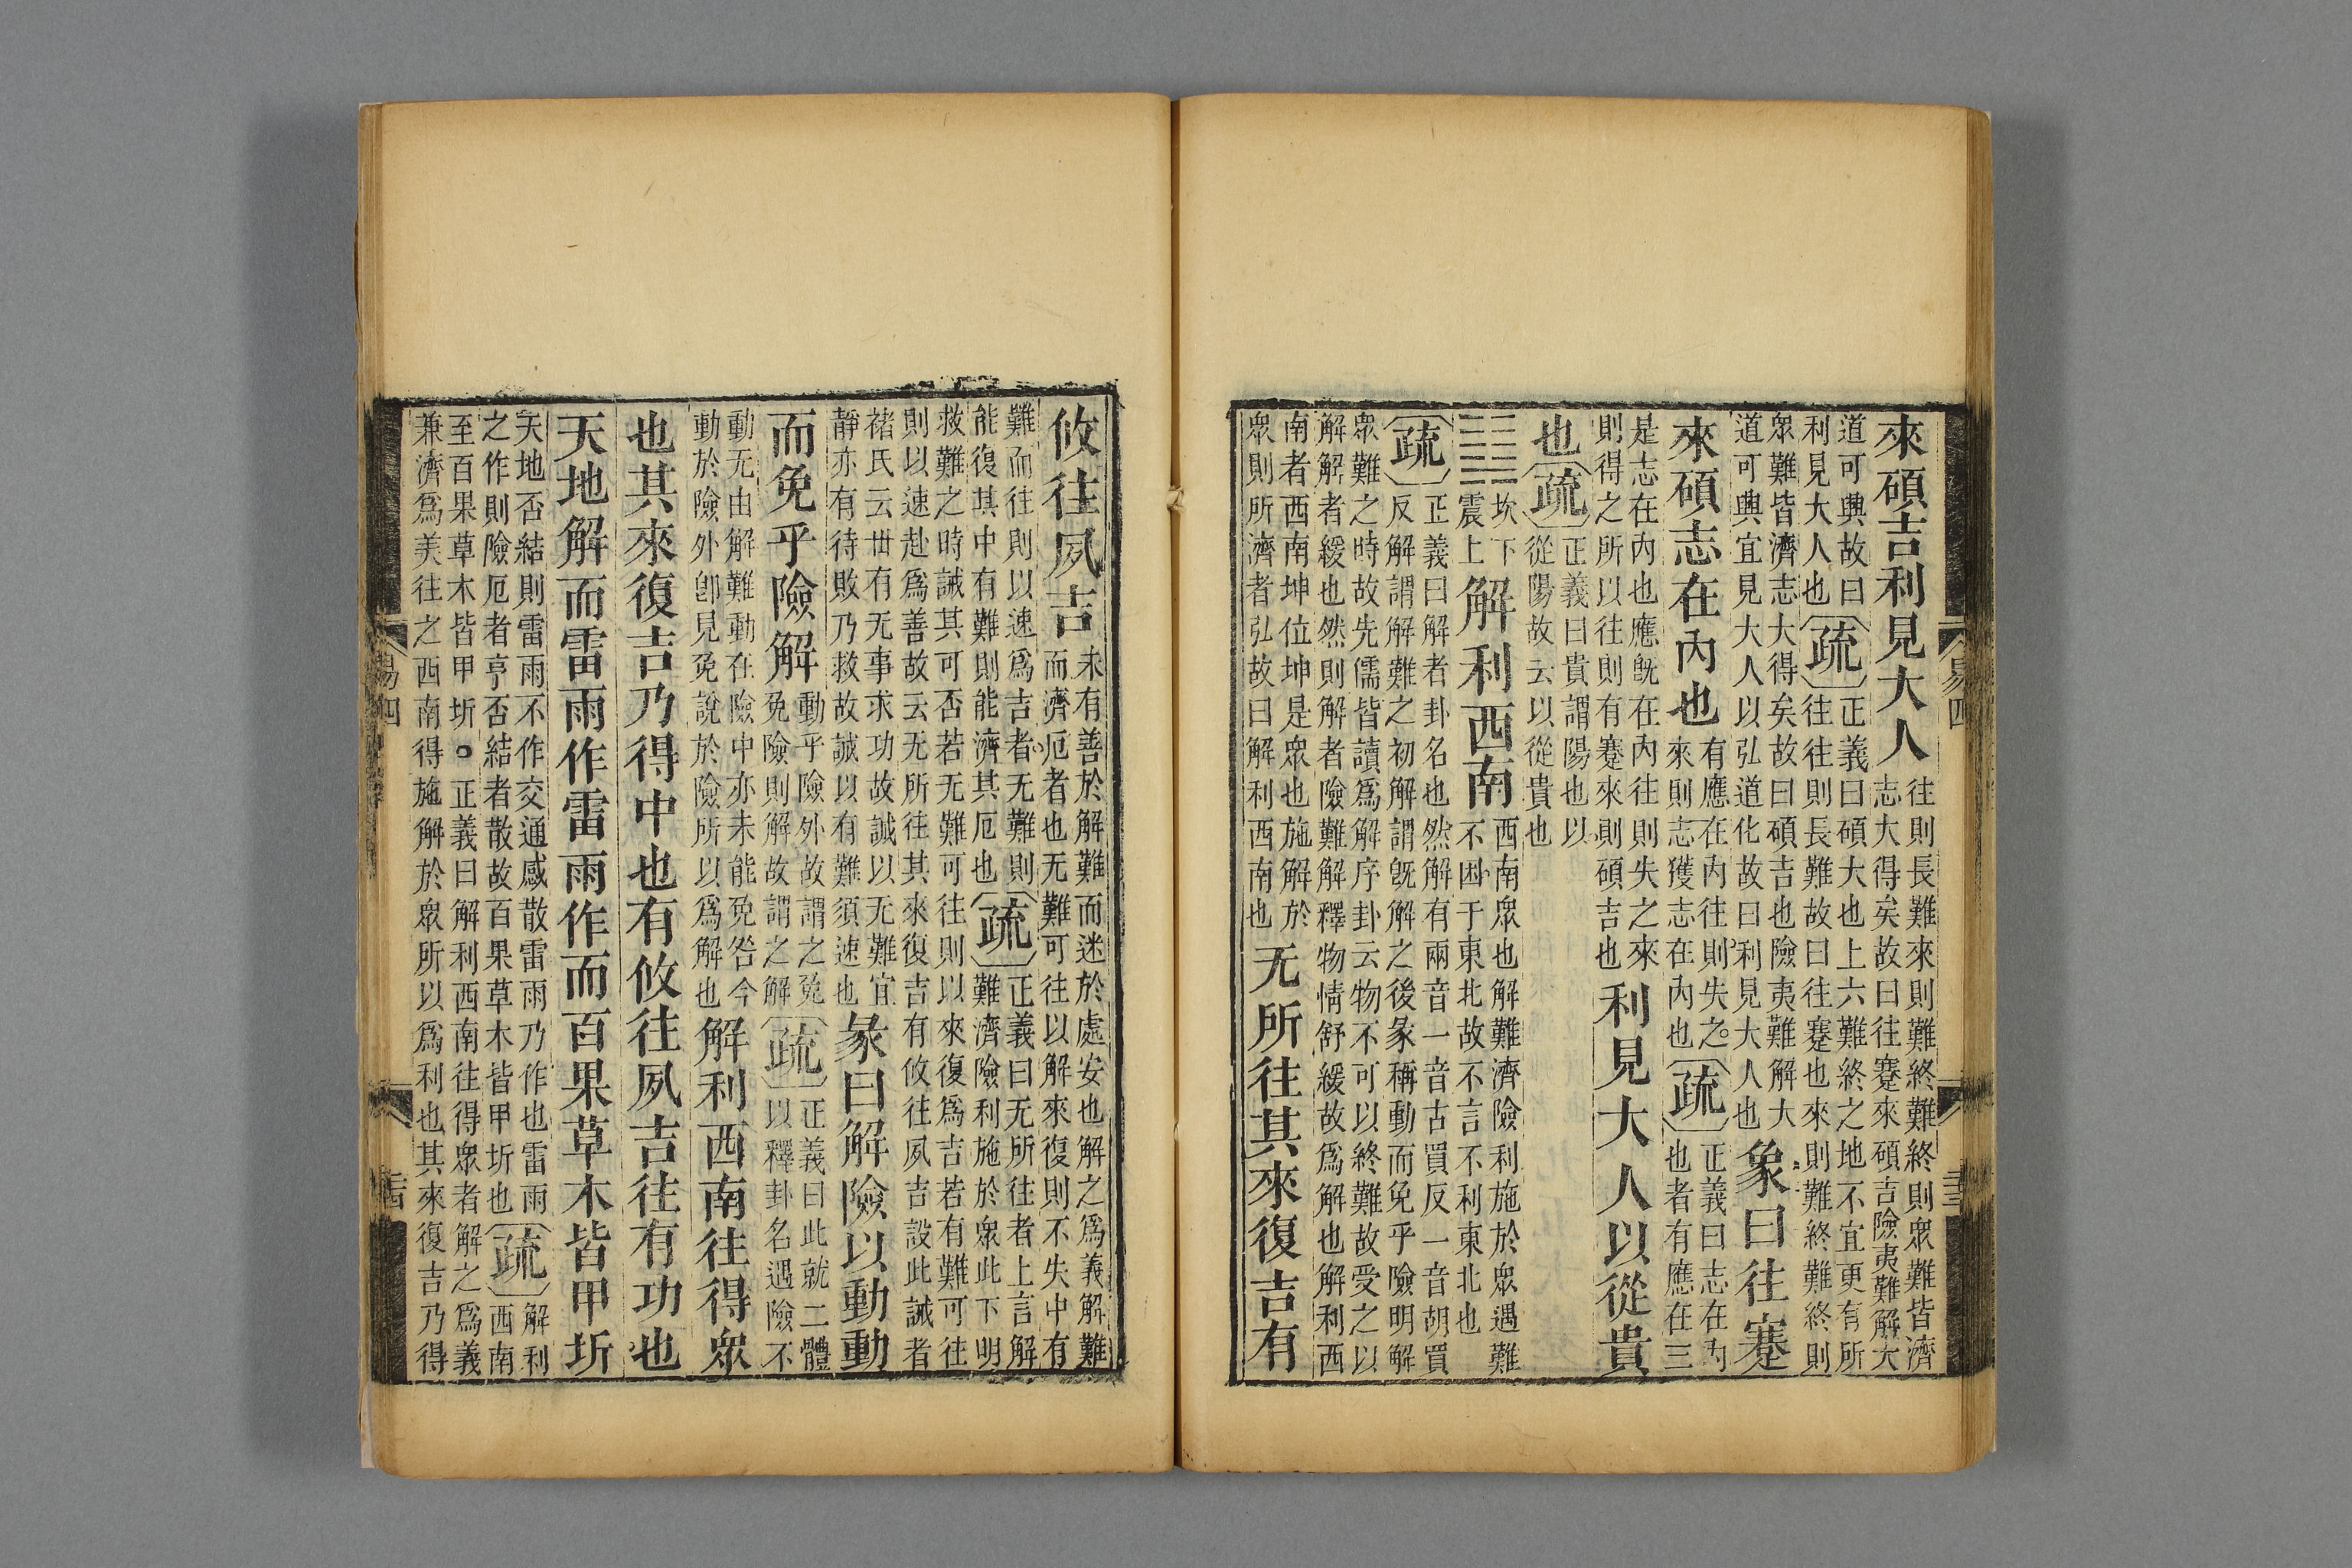 易四
三三
來碩吉利見大人
往則長難來則難終難終則衆難皆濟
志大得矣故曰往蹇來碩吉險夷難解大
道可興故曰
利見大人也
疏
正義曰碩大也上六難終之地不宜更有所
往往則長難故曰往蹇也來則難終難終則
衆難皆濟志大得矣故曰碩吉也險夷難解大
道可興宜見大人以弘道化故曰利見大人也
象曰往蹇
來碩志在內也
有應在內往則失之
來則志獲志在內也
疏
正義曰志在內
也者有應在三
是志在內也應旣在內往則失之來
則得之所以往則有蹇來則碩吉也
利見大人以從貴
也
疏
正義曰貴謂陽也以
從陽故云以從貴也
䷧
坎下
震上
解利西南
西南衆也解難濟險利施於衆遇難
不困于東北故不言不利東北也
疏
正義曰解者卦名也然解有兩音一音古買反一音胡買
反解謂解難之初解謂旣解之後彖稱動而免乎險明解
衆難之時故先儒皆讀爲解序卦云物不可以終難故受之以
解解者緩也然則解者險難解釋物情舒緩故爲解也解利西
南者西南坤位坤是衆也施解於
衆則所濟者弘故曰解利西南也
无所往其來復吉有
攸往夙吉
未有善於解難而迷於處安也解之爲義解難
而濟厄者也无難可往以解來復則不失中有
難而往則以速爲吉者无難則
能復其中有難則能濟其厄也
疏
正義曰无所往者上言解
難濟險利施於衆此下明
救難之時誡其可否若无難可往則以來復爲吉若有難可往
則以速赴爲善故云无所往其來復吉有攸往夙吉設此誡者
褚氏云世有无事求功故誡以无難宜
靜亦有待敗乃救故誡以有難須速也
彖曰解險以動動
而免乎險解
動乎險外故謂之免
免險則解故謂之解
疏
正義曰此就二體
以釋卦名遇險不
動无由解難動在險中亦未能免咎今
動於險外卽見免說於險所以爲解也
解利西南往得衆
也其來復吉乃得中也有攸往夙吉往有功也
天地解而雷雨作雷雨作而百果草木皆甲坼
天地否結則雷雨不作交通感散雷雨乃作也雷雨
之作則險厄者亨否結者散故百果草木皆甲坼也
疏
解利
西南
至百果草木皆甲坼。正義曰解利西南往得衆者解之爲義
兼濟爲美往之西南得施解於衆所以爲利也其來復吉乃得
易四